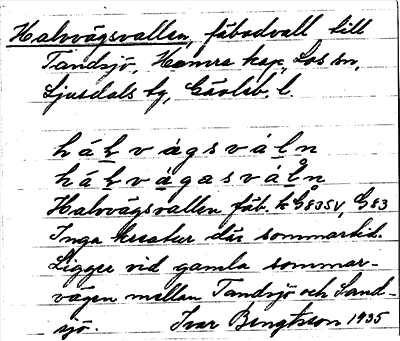 Halvvägsvallen, fäbodvall till
Tandsjö, Hamra kap., Los sn,
Ljusdals tg, Gävleb. l.
hálvágsváln
hálvágasváln
Halvvägsvallen fäb. k G835V, G83
Inga kreatur där sommartid.
Ligger vid gamla sommar-
vägen mellan Tandsjö och Sand-
sjö. Ivar Bengtsson 1935